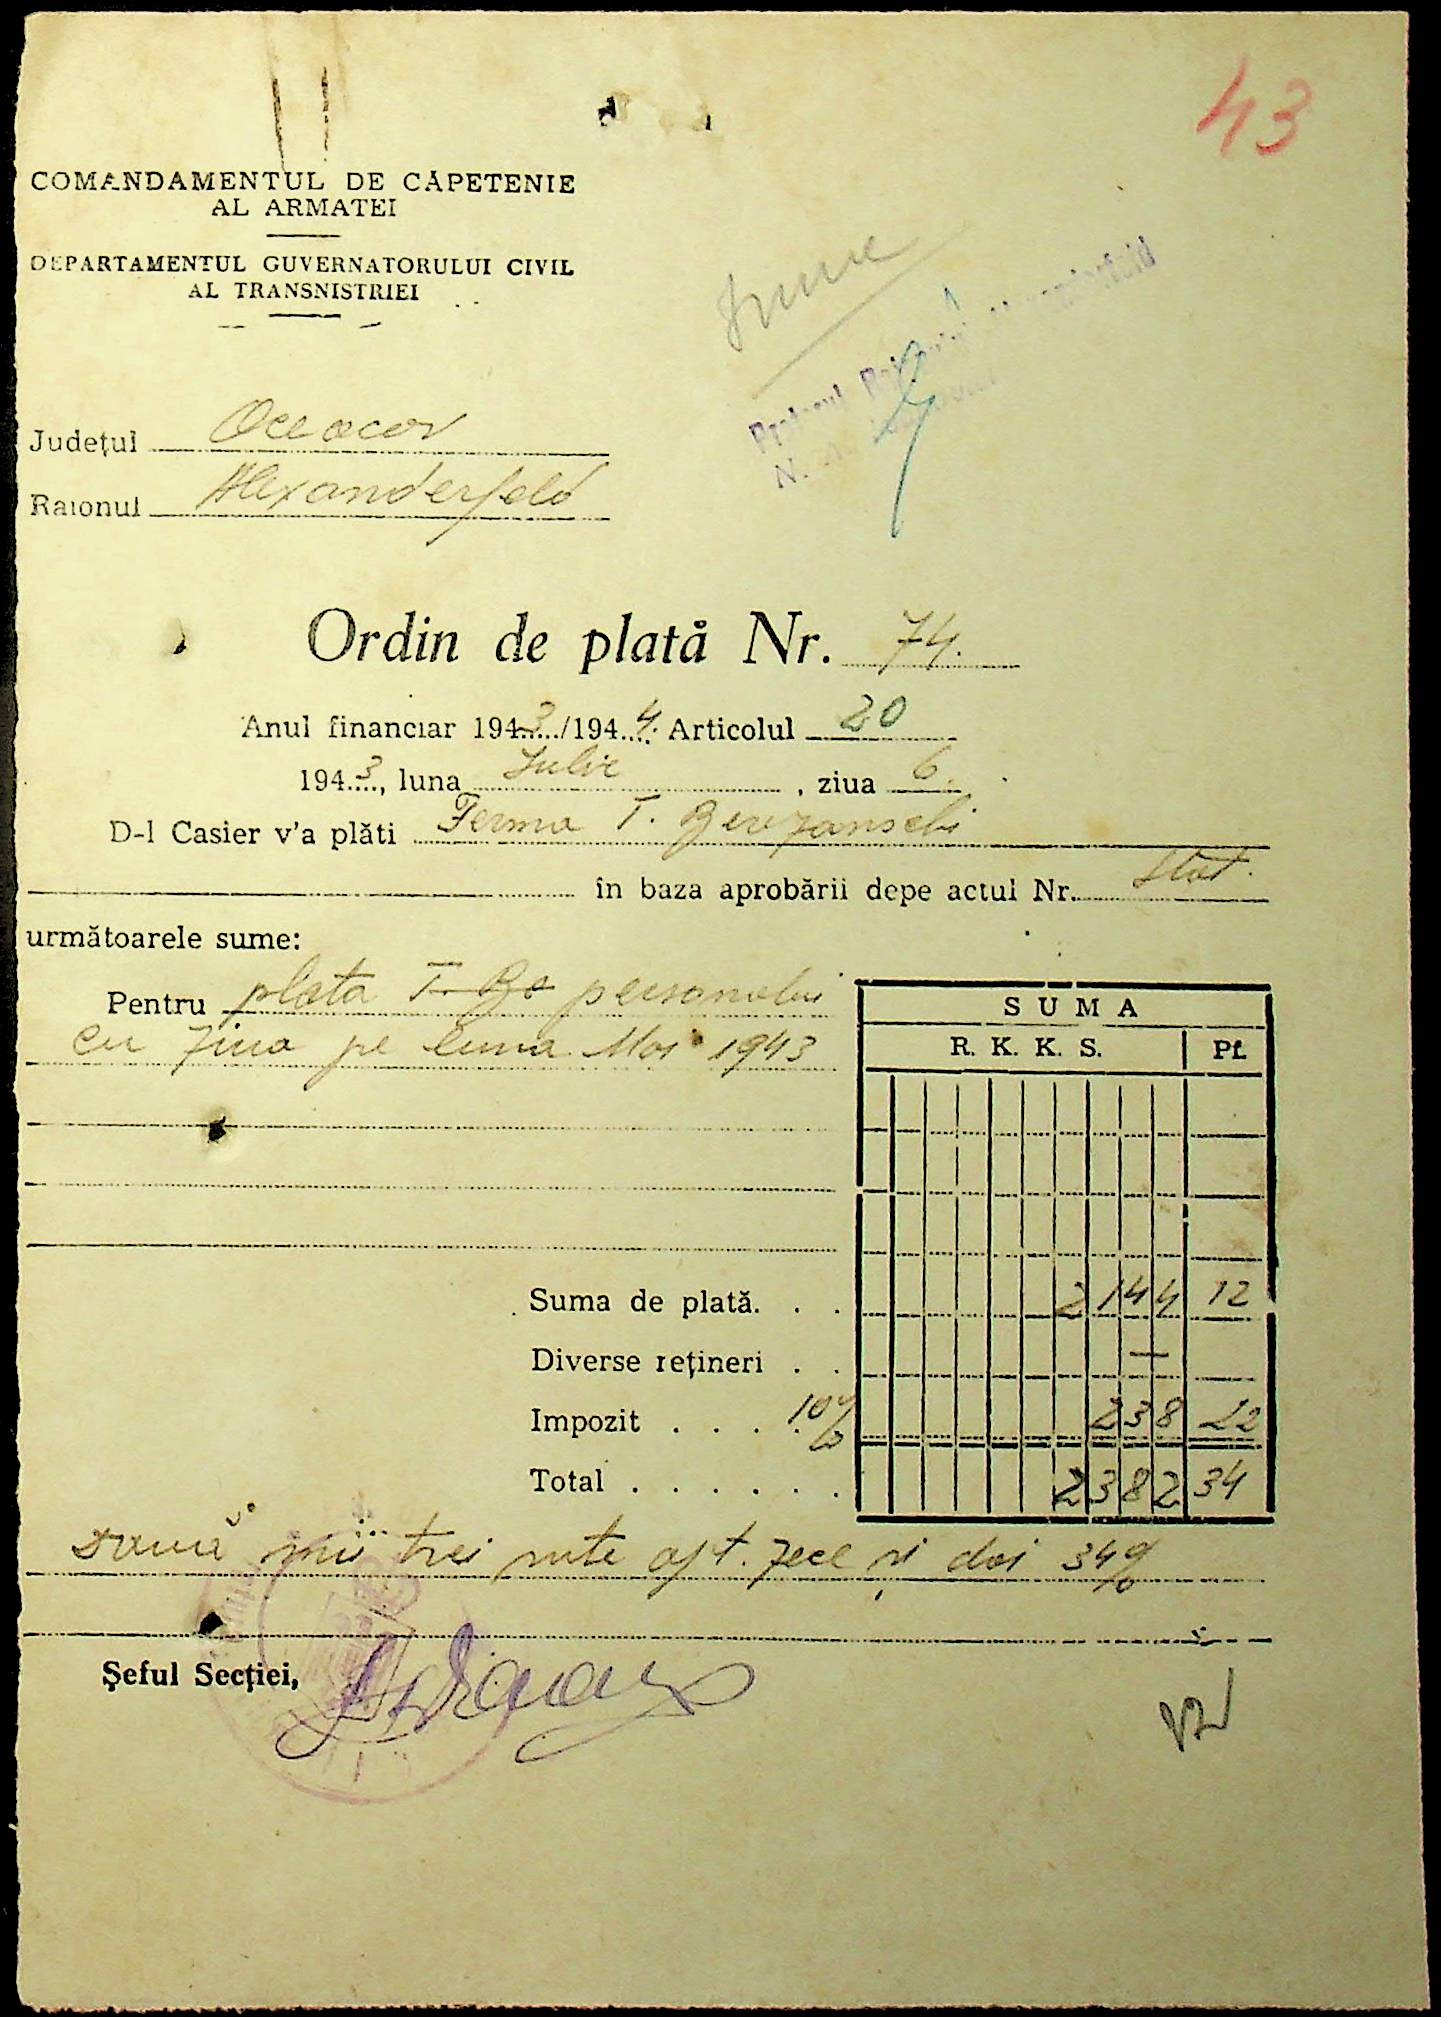 43
COMANDAMENTUL DE CAPETENIE
AL ARMATEI
DEPARTAMENTUL GUVERNATORULUI CIVIL
AL TRANSNISTRIEI
Județul Oceacov
Raionul Alexanderfeld
Ordin de plată Nr. 74.
Anul financiar 1943/1944. Articolul 20
1943, luna Iulie, ziua 6.
D-l Casier v'a plăti Ferma T. Berezanschi
în baza aprobării depe actul Nr. Stat.
următoarele sume:
Pentru plata personalui
cu ziua pe luna Mai 1943
SUMA
R. K. K. S. Pf.
Suma de plată. . . 2144 12
Diverse rețineri . . —
Impozit . . . . 10% 238 22
Total . . . . . . 2382 34
Două mii trei sute opt. zece și doi 34%
Șeful Secției,